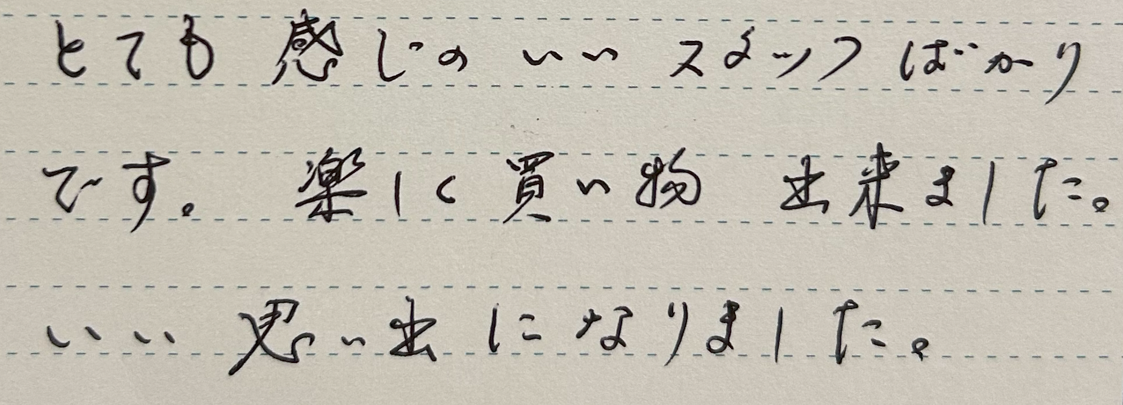 とても感じのいいスタッフばかり
です。楽しく買い物出来ました。
いい思い出になりました。